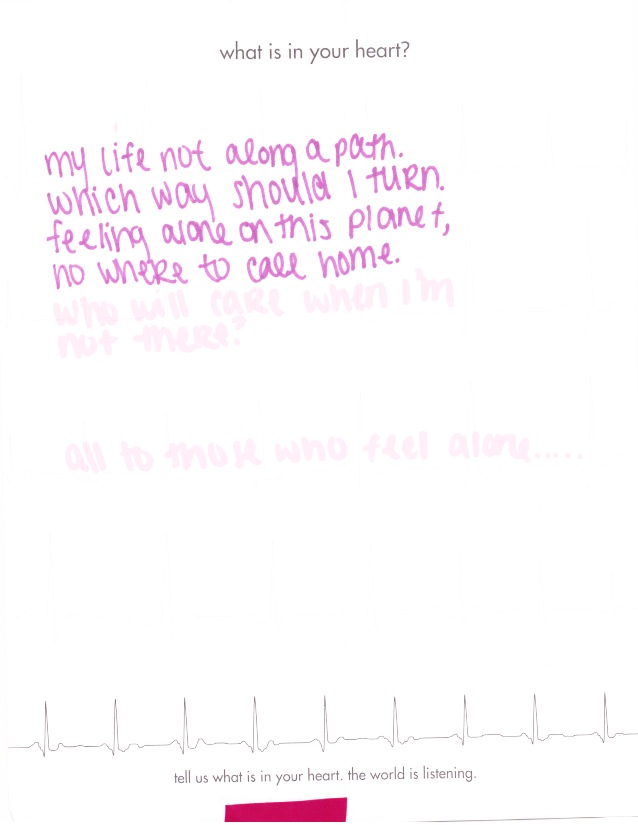 what is in your heart?
my life not along a path.
which way should I turn.
feeling alone on this planet,
no where to call home.
who will care when I'm
not there?
all to those who feel alone.....
tell us what is in your heart. the world is listening.